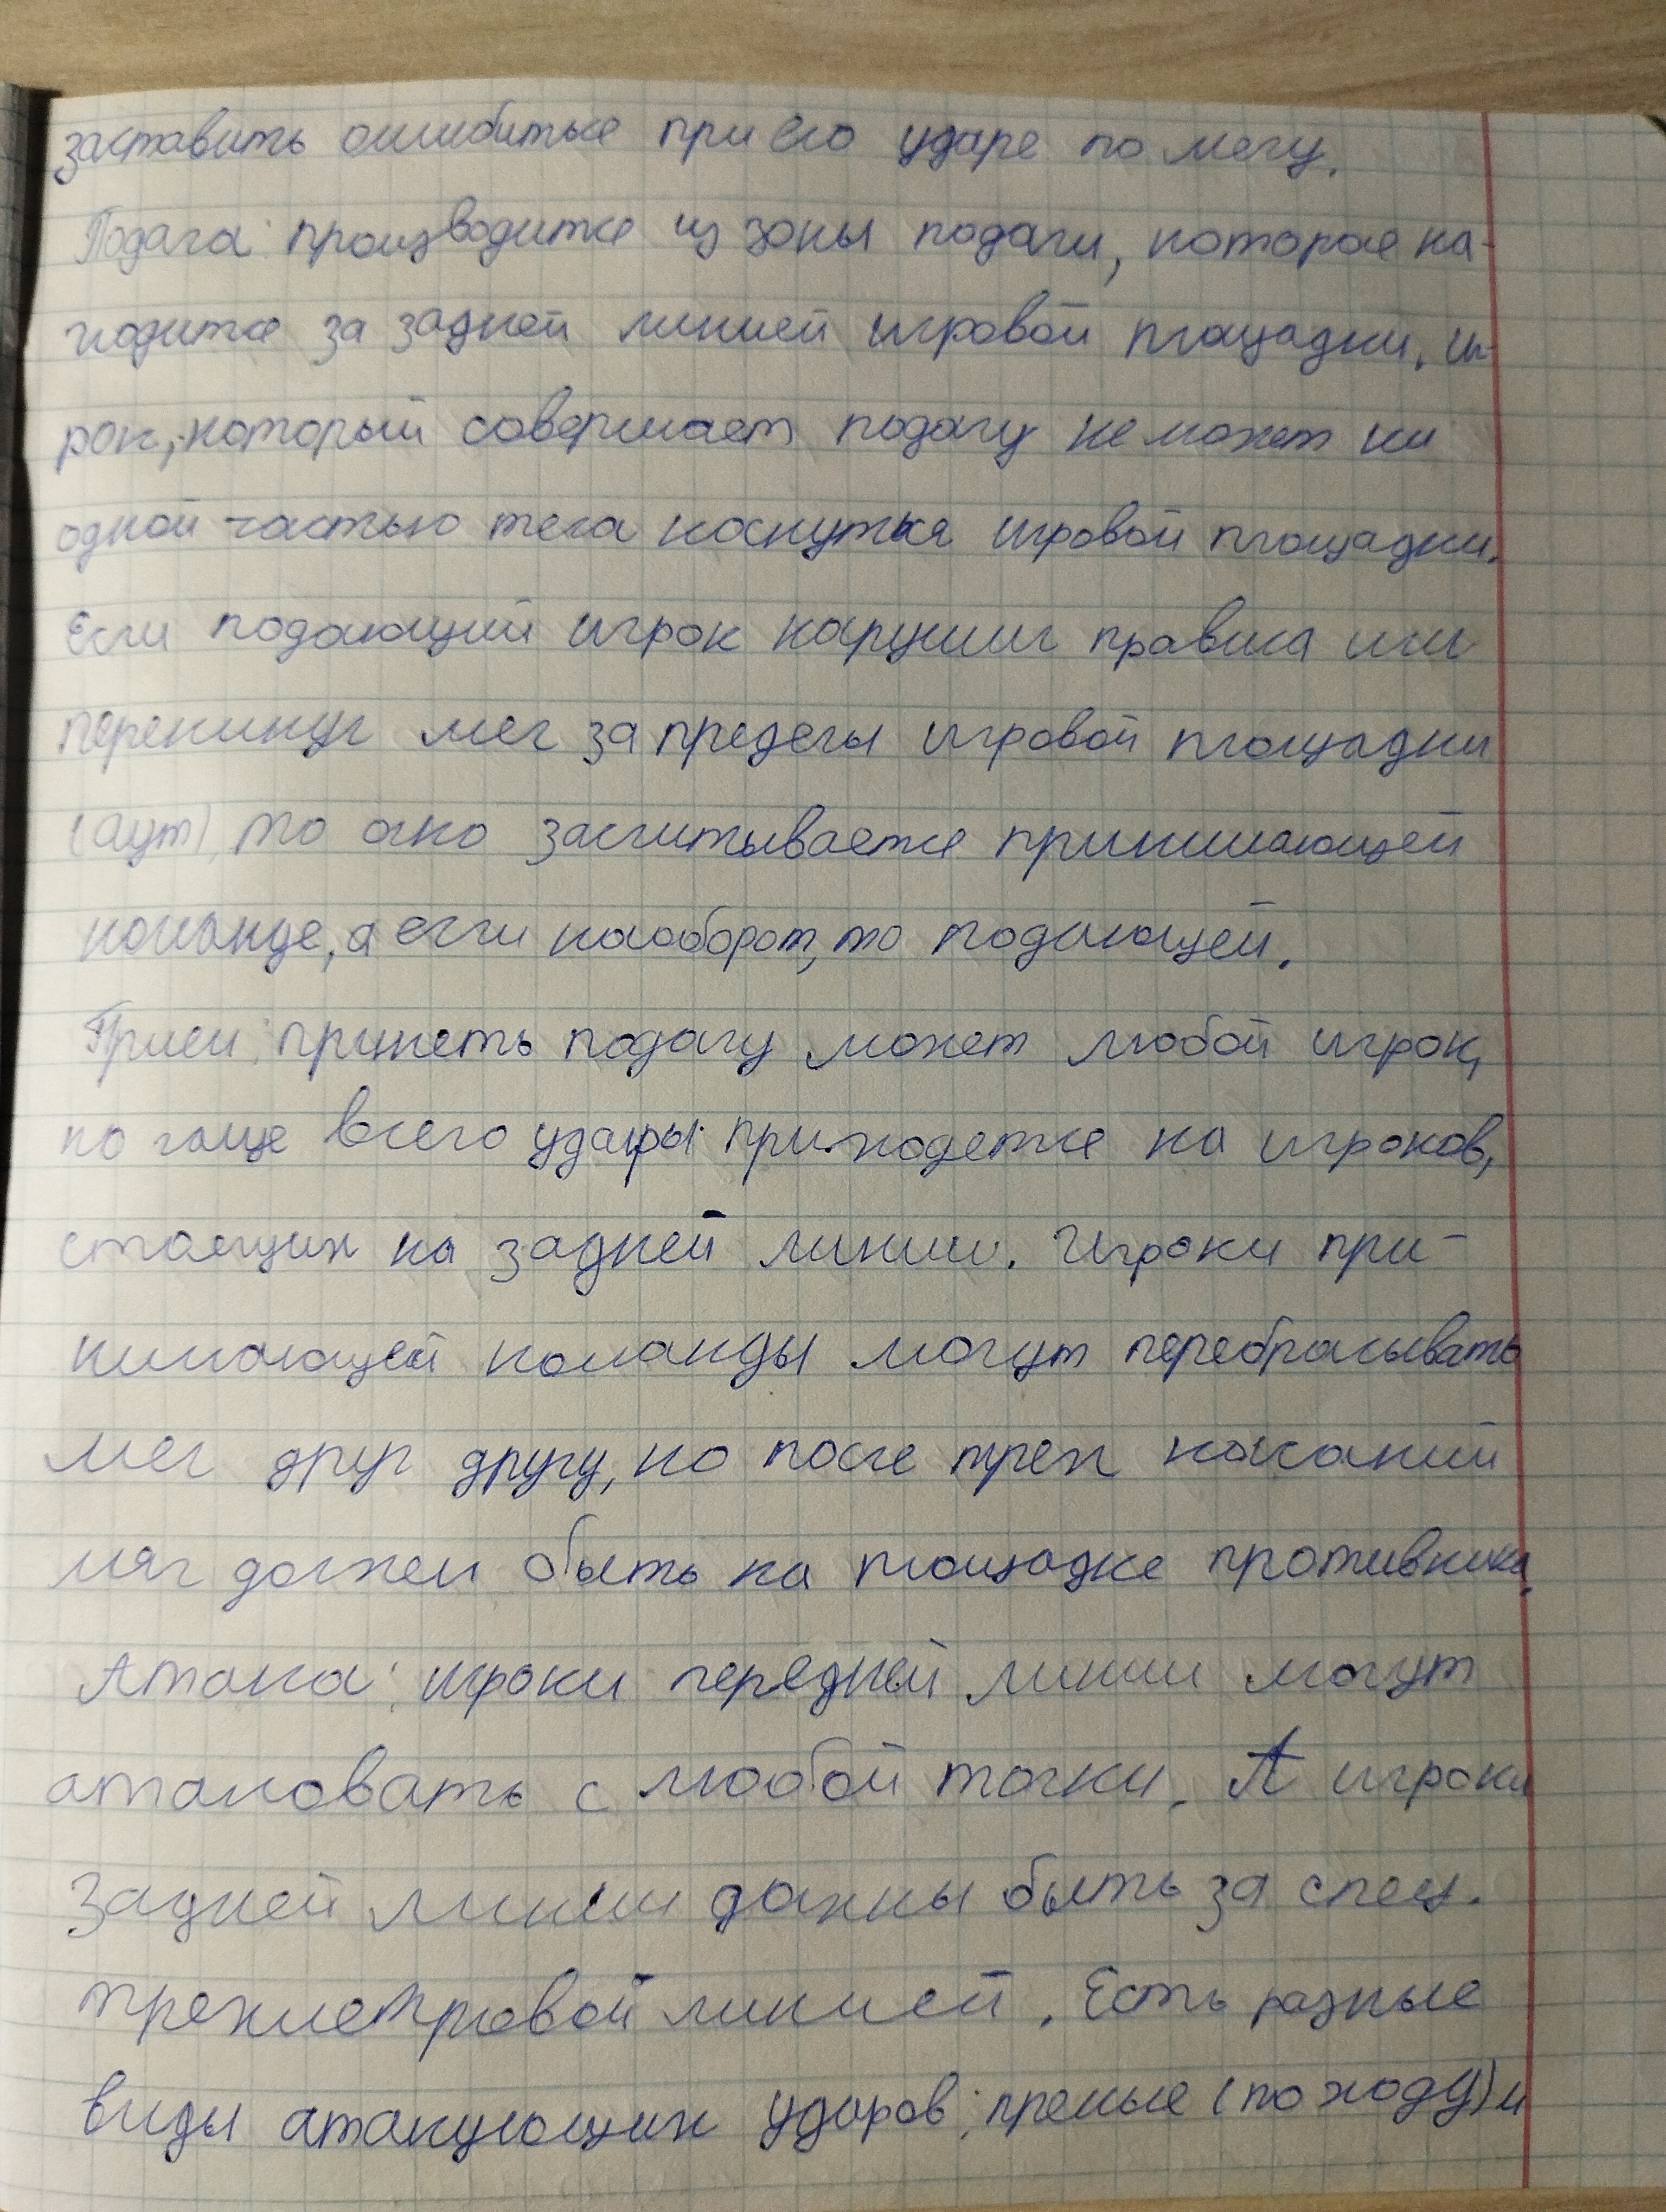 заставить ошибиться при его ударе по мечу.
Подача: производится из зоны подачи, которое на-
ходится за задней линией игровой площадки. Иг-
рок, который совершает подачу не может ни
одной частью тела коснуться игровой площадки.
Если подающий игрок нарушил правила или
перекинул меч за пределы игровой площадки
(аут), то очко засчитывается принимающей
команде, а если наоборот, то подающей.
Прием: принеть подачу может любой игрок,
но чаще всего удары приходетсе на игроков,
стоящих на задней линии. Игроки при-
нимающей команды могут перебрасывать
меч друг другу, но после трех касаний
мяч должен быть на площадке противника.
Атака: игроки передней линии могут
атаковать с любой точки. А игроки
задней линии должны быть за спец.
трехметровой линией. Есть разные
виды атакующих ударов: премые (по ходу) и